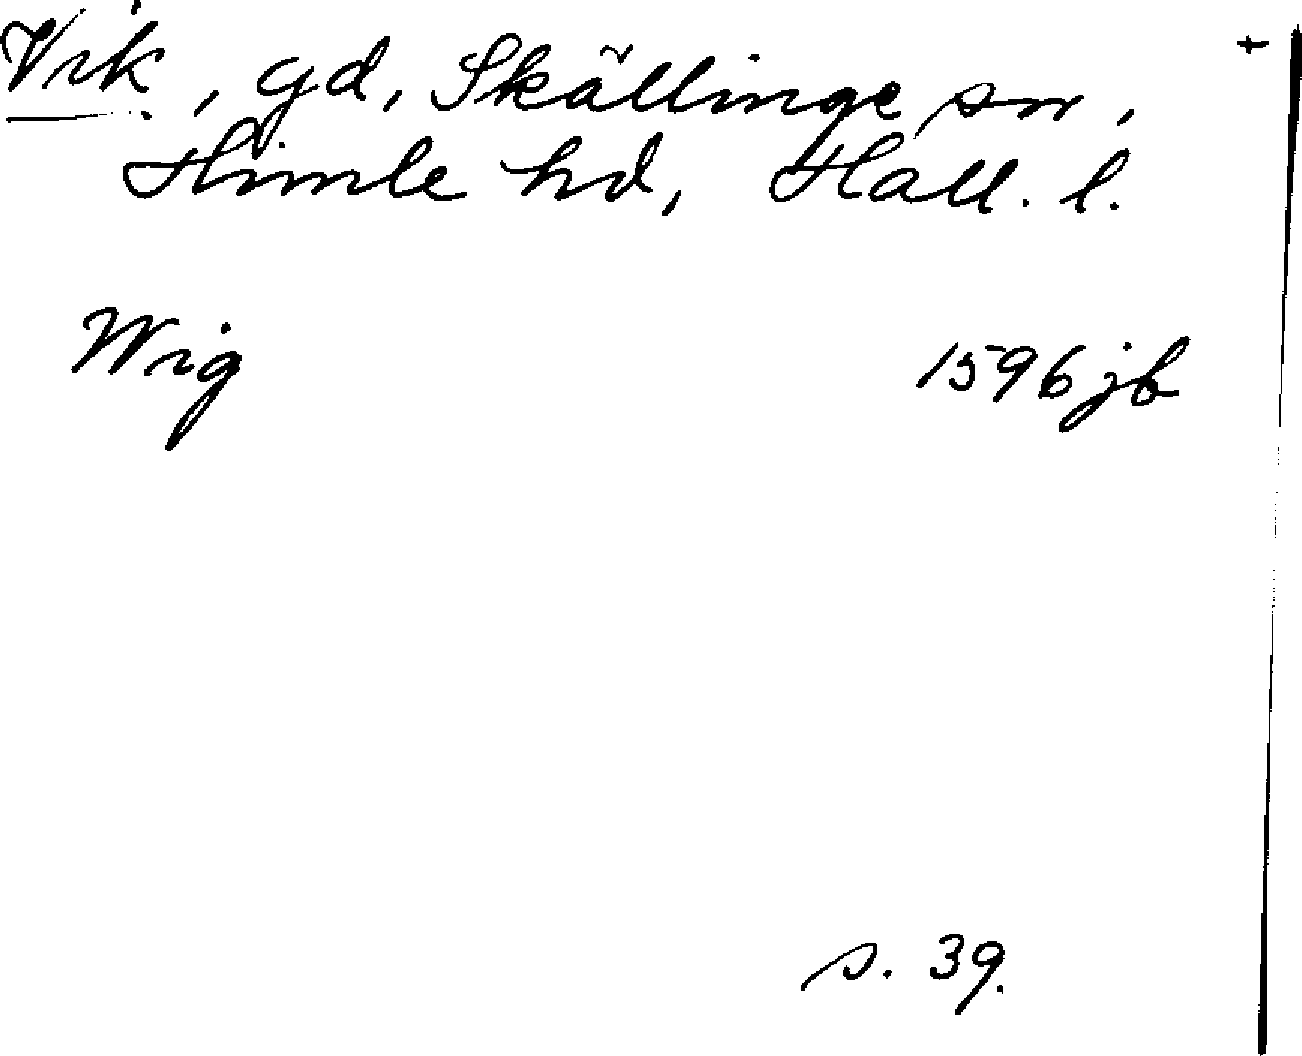 Vik, gd, Skällinge sn, +
Himle hd, Hall. l.
Wig 1596 jb
s. 39.